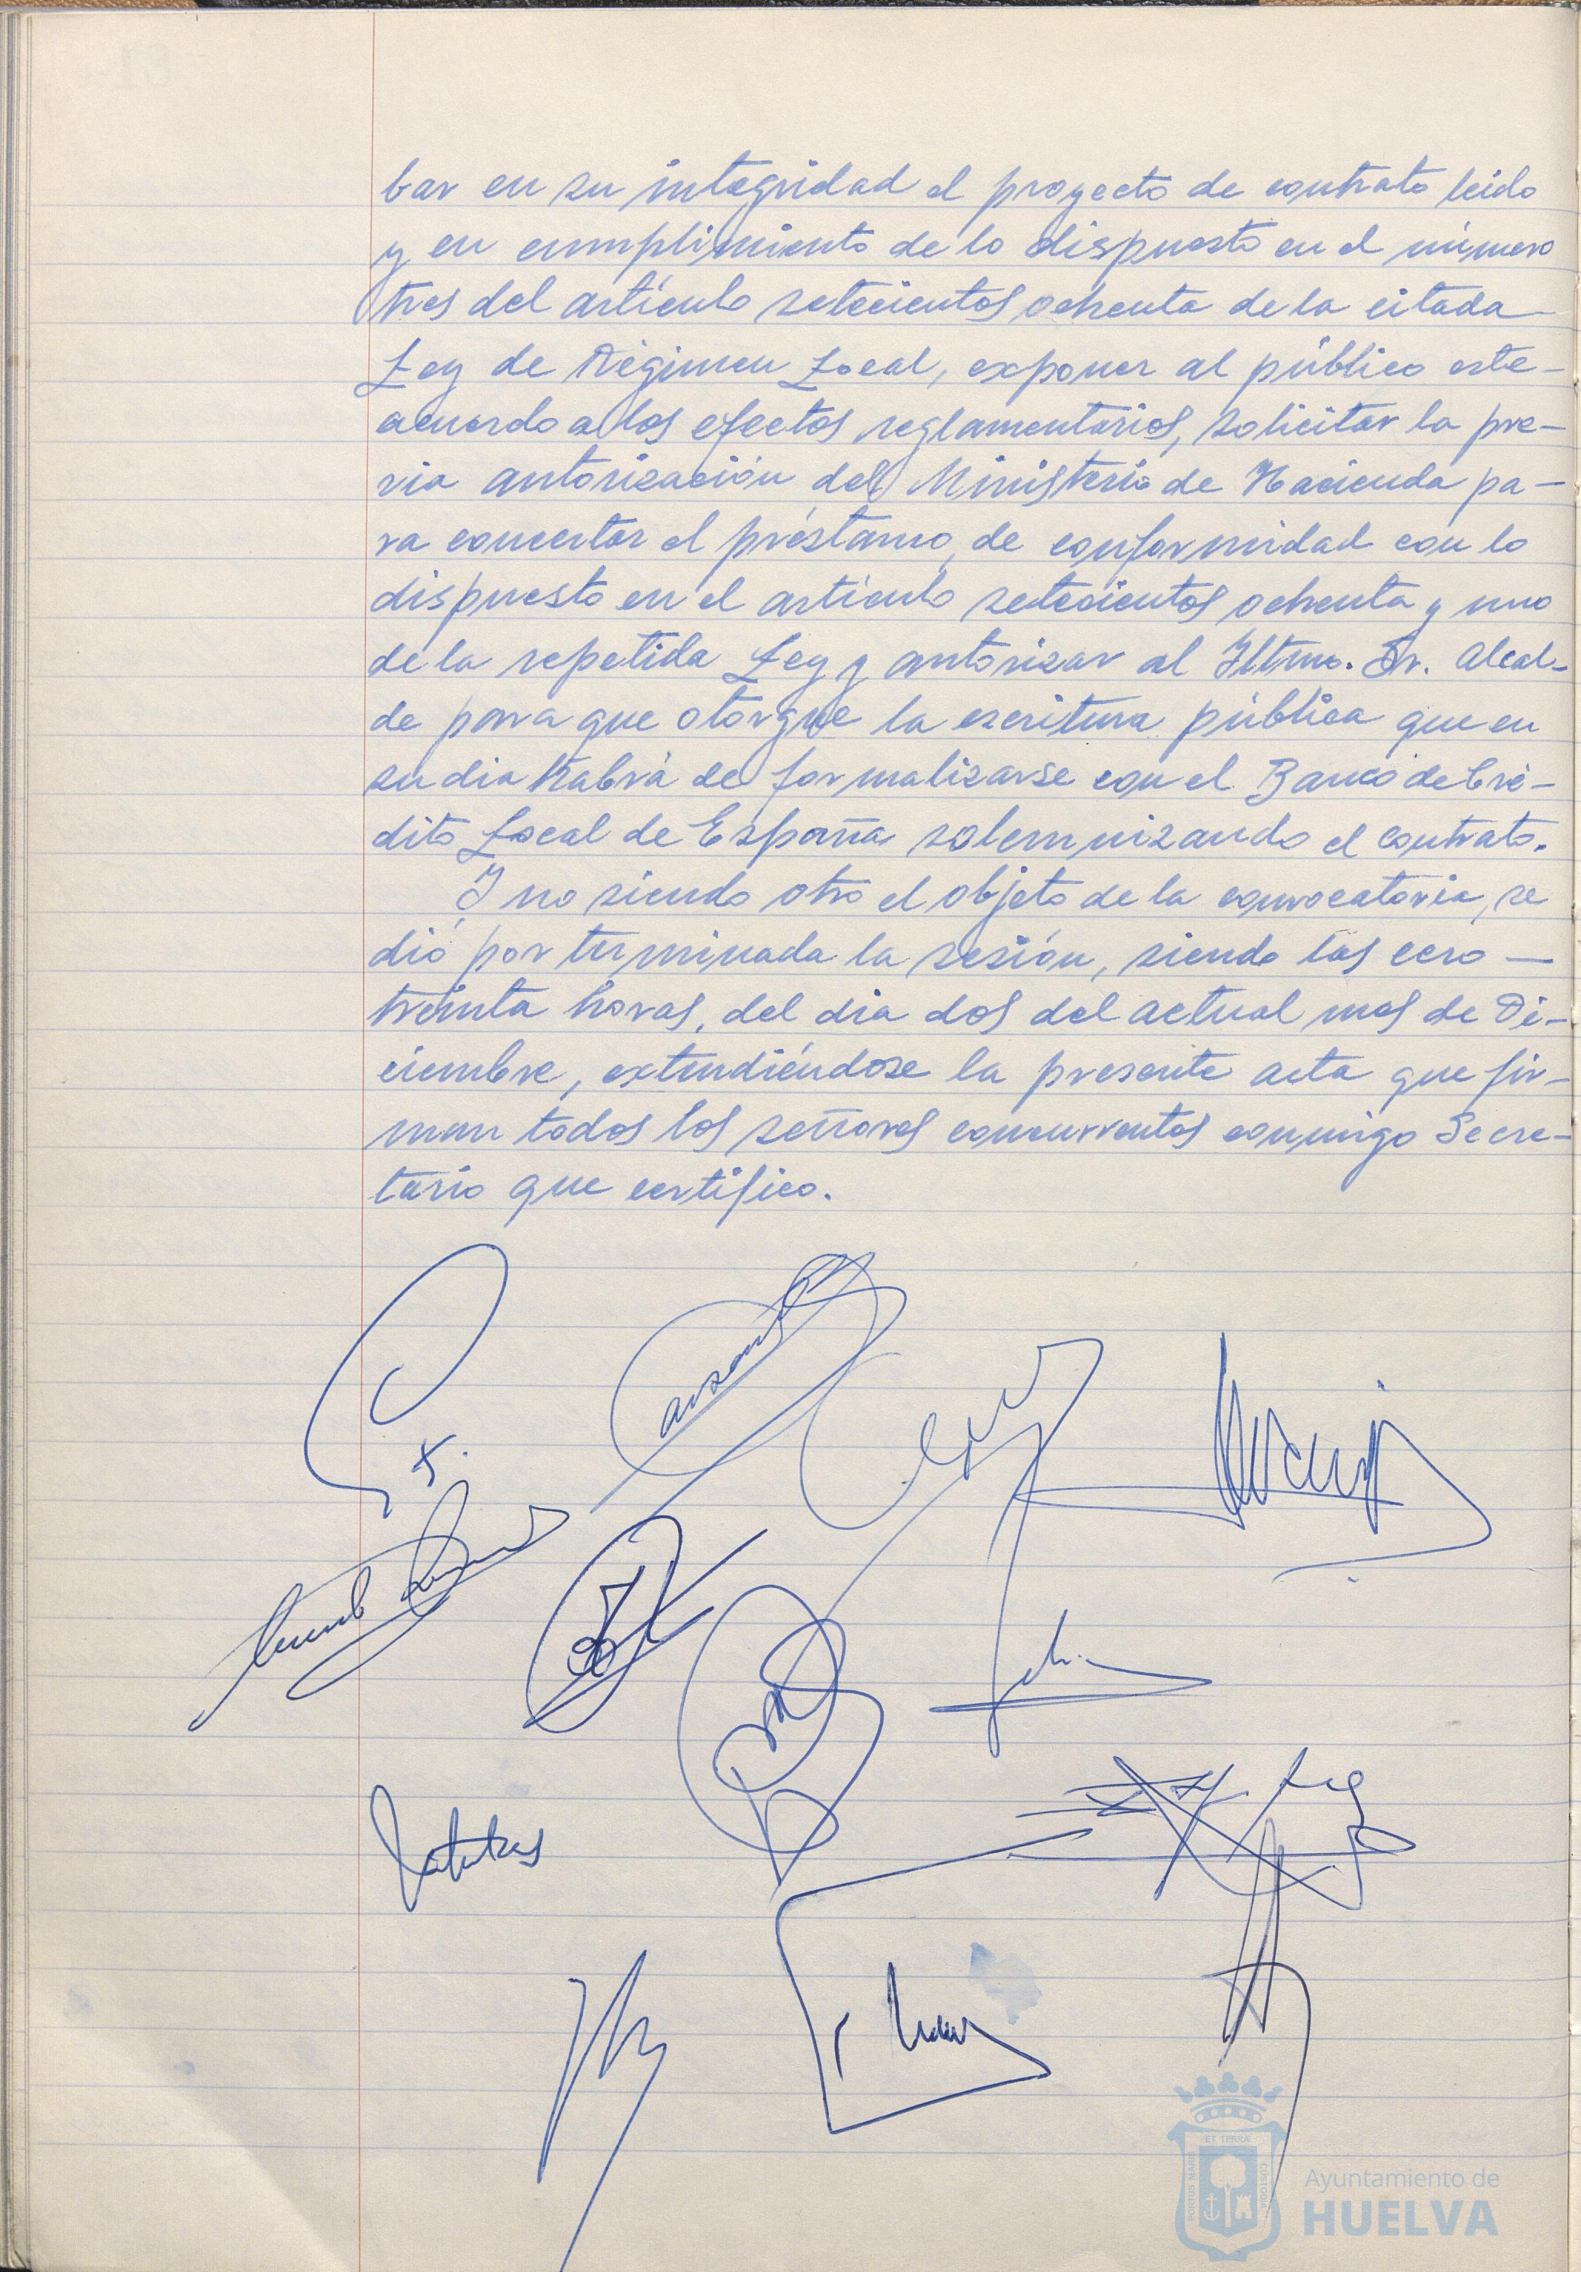 bar en su integridad el proyecto de contrato leido
y en cumplimiento de lo dispuesto en el número
tres del artículo setecientos ochenta de la citada
Ley de Régimen Local, exponer al público este
acuerdo a los efectos reglamentarios, solicitar la pre-
via autorización del Ministerio de Hacienda pa-
ra concertar el préstamo, de conformidad con lo
dispuesto en el artículo setecientos ochenta y uno
de la repetida Ley y autorizar al Iltmo. Sr. Alcal-
de para que otorgue la escritura pública que en
su dia habrá de formalizarse con el Banco de Cré-
dito Local de España solemnizando el contrato.
Y no siendo otro el objeto de la convocatoria, se
dió por terminada la sesión, siendo las cero —
treinta horas, del dia dos del actual mes de Di-
ciembre, extendiéndose la presente acta que fir-
man todos los señores concurrentes conmigo Secre-
tario que certifico.
ET TERRÆ
PORTUS MARIS
CUSTODIA
Ayuntamiento de
HUELVA